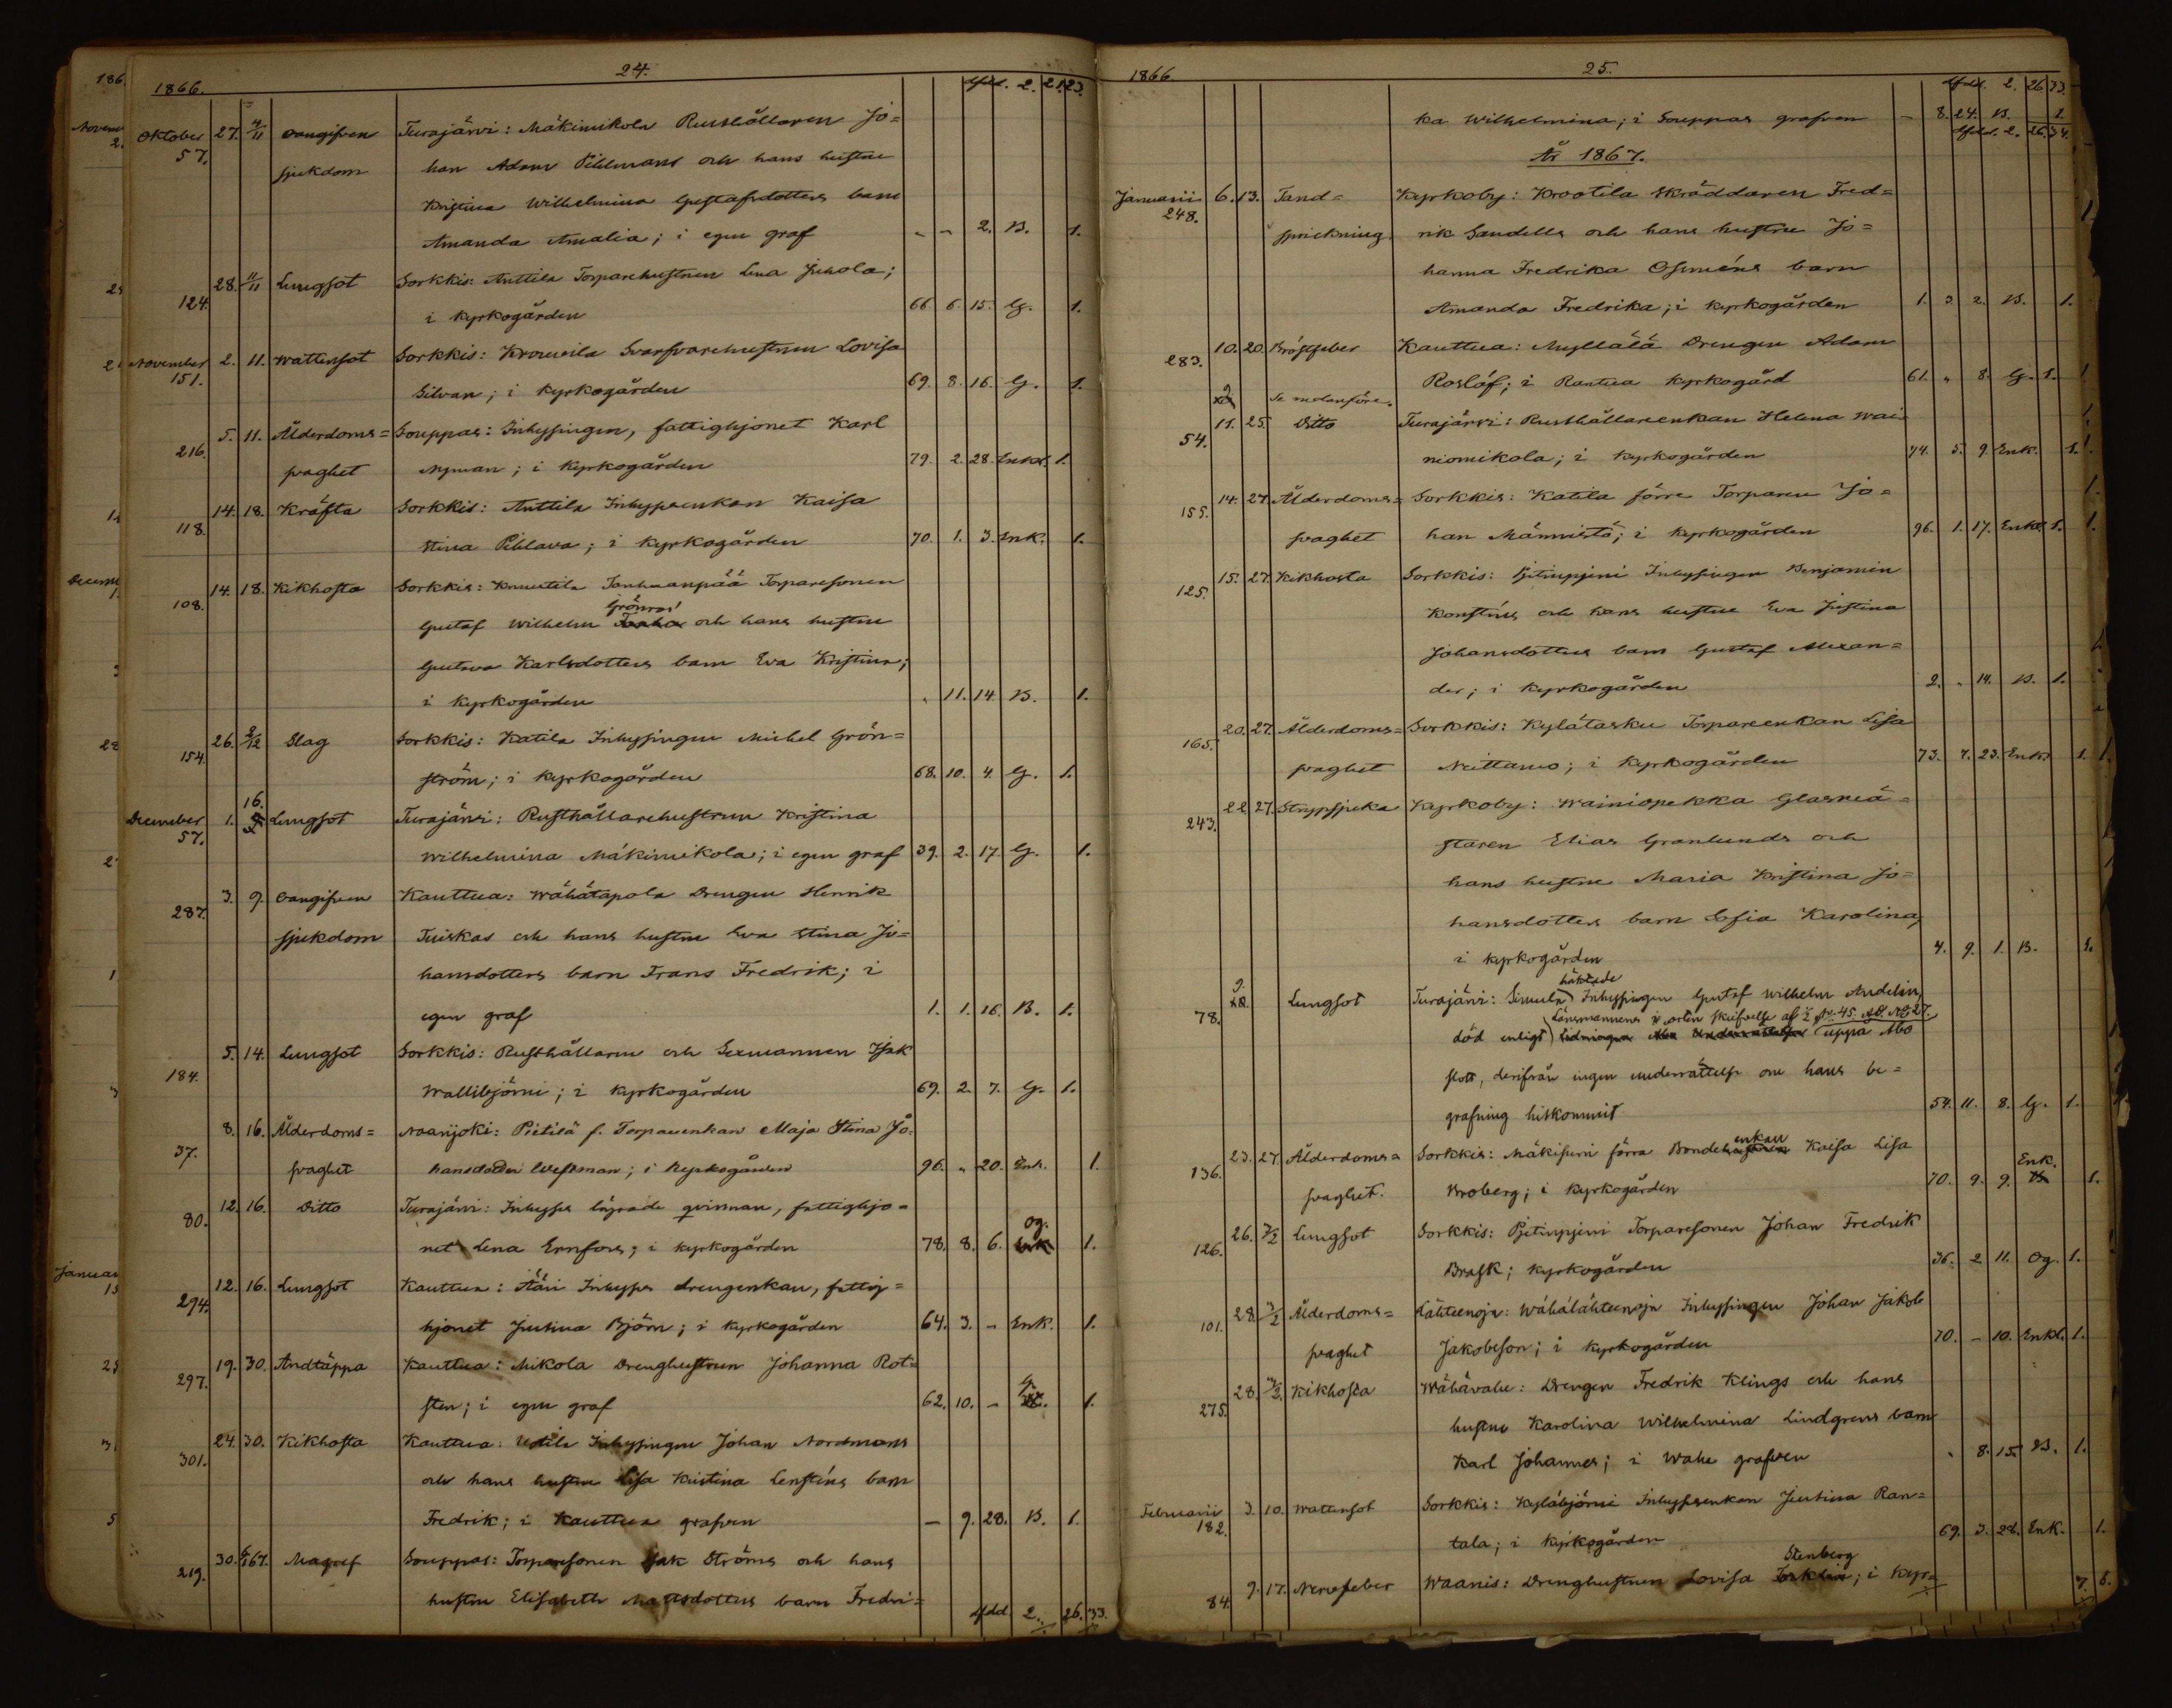 1866. 24. Lfdd. 2. 21. 23.
Oktober 57. 27. 4/11 Oangifven Turajärvi: Mäkimikola Rusthållaren Jo=
sjukdom han Adam Pihlmans och hans hustru
Kristina Wilhelmina Gustafsdotters barn
Amanda Amalia; i egen graf - - 2. B. 1.
124. 28. 11/11 Lungsot Sorkkis: Anttila Torparehustrun Lena Juhola;
i kyrkogården 66. 6. 15. G. 1.
November 151. 2. 11. Wattensot Sorkkis: Krouvila Svarfvarehustrun Lovisa
Silvan; i kyrkogården 69. 8. 16. G. 1.
216. 5. 11. Ålderdoms= Souppas: Inhysingen, fattighjonet Karl
svaghet Nyman; i kyrkogården 79. 2. 28. Enkl. 1.
118. 14. 18. Kräfta Sorkkis: Anttila Inhysesenkan Kaisa
Stina Pihlava; i kyrkogården 70. 1. 3. Enk. 1.
108. 14. 18. Kikhosta Sorkkis: Knuutila Tanhuanpää Torparesonen
Grönroos
Gustaf Wilhelm Tanhua och hans hustru
Gustava Karlsdotters barn Eva Kristina;
i kyrkogården " 11. 14. B. 1.
154. 26. 2/12 Slag Sorkkis: Katila Inhysingen Michel Grön=
ström; i kyrkogården 68. 10. 4. G. 1.
16.
December 57. 1. Lungsot Turajärvi: Rusthållarehustrun Kristina
Wilhelmina Mäkimikola; i egen graf 39. 2. 17. G. 1.
287. 3. 9. Oangifven Kauttua: Wähätapola Drengen Henrik
sjukdom Tuiskas och hans hustru Eva Stina Jo=
hansdotters barn Frans Fredrik; i
egen graf 1. 1. 16. B. 1.
184. 5. 14. Lungsot Sorkkis: Rusthållaren och Sexmannen Isak
Wallibjörni; i kyrkogården 69. 2. 7. G. 1.
37. 8. 16. Ålderdoms= Naarijoki: Pietilä f. Torpareenkan Maja Stina Jo=
svaghet hansdotter Westman; i kyrkogården 96. " 20. Enk. 1.
80. 12. 16. Ditto Turajärvi: Inhyses lägrade qvinnan, fattighjo=
net Lena Ernfors; i kyrkogården 78. 8. 6. Og. 1.
294. 12. 16. Lungsot Kauttua: Ääri Inhyses drengenkan, fattig=
hjonet Justina Björn; i kyrkogården 64. 3. - Enk. 1.
297. 19. 30. Andtäppa Kauttua: Mikola Drenghustrun Johanna Rot=
sten; i egen graf 62. 10. - G. 1.
301. 24. 30. Kikhosta Kauttua: Uotila Inhysingen Johan Nordmans
och hans hustru Lisa Kristina Lensténs barn
Fredrik; i Kauttua grafven - 9. 28. B. 1.
219. 30. 6/1 67. Magref Souppas: Torparesonen Isak Ströms och hans
hustru Elisabeth Mattsdotters barn Fredri=
Lfdd. 2. 26. 33.
1866. 25. Lfdd. 2. 26. 33.
ka Wilhelmina; i Souppas grafven - 8. 24. B. 1.
Lfdd. 2. 26. 34.
År 1867.
Januarii 248. 6. 13. Tand= Kyrkoby: Krootila Skräddaren Fred=
sprickning. rik Sandells och hans hustru Jo=
hanna Fredrika Osméns barn
Amanda Fredrika; i kyrkogården 1. 3. 2. B. 1.
283. 10. 20. Bröstfeber Kauttua: Myllälä Drengen Adam
Roslöf; i Kauttua kyrkogård 61. " 8. G. 1.
9. Se nedanföre.
54. 11. 25. Ditto Turajärvi: Rusthållareenkan Helena Wai=
niomikola; i kyrkogården 74. 5. 9. Enk. 1.
155. 14. 27. Ålderdoms= Sorkkis: Katila förre Torparen Jo=
svaghet han Männistö; i kyrkogården 96. 1. 17. Enkl. 1.
125. 15. 27. Kikhosta Sorkkis: Pietinpieni Inhysingen Benjamin
Konsténs och hans hustru Eva Justina
Johansdotters barn Gustaf Alexan=
der; i kyrkogården 2. " 14. B. 1.
165. 20. 27. Ålderdoms= Sorkkis: Kylätasku Torpareenkan Lisa
svaghet Neittamo; i kyrkogården 73. 7. 23. Enk. 1.
243. 22. 27. Strypsjuka Kyrkoby: Wainiopekka Glasmä=
staren Elias Granlunds och
hans hustru Maria Kristina Jo=
hansdotters barn Sofia Karolina;
i kyrkogården 4. 9. 1. B. 1.
häktade
78. 9. Lungsot Turajärvi: Simula Inhysingen Gustaf Wilhelm Andelin,
Länsmannens i orten skrifvelse af No 45.
död enligt uppå Åbo
slott, derifrån ingen underrättelse om hans be=
grafning hitkommit 54. 11. 8. G. 1.
enkan
136. 23. 27. Ålderdoms= Sorkkis: Mäkisuni förra Bonde Kaisa Lisa
svaghet. Broberg; i kyrkogården 70. 9. 9. Enk. 1.
126. 26. 3/2 Lungsot Sorkkis: Pietinpieni Torparesonen Johan Fredrik
Brask; kyrkogården 36. 2. 11. Og. 1.
101. 28. 3/2 Ålderdoms= Lähteenoja: Wähälähteenoja Inhysingen Johan Jakob
svaghet Jakobsson; i kyrkogården 70. - 10. Enkl. 1.
275. 28. Kikhosta Wähävahe: Drengen Fredrik Klings och hans
hustru Karolina Wilhelmina Lindgrens barn
Karl Johannes; i Wahe grafven " 8. 15. B. 1.
Februarii 182. 3. 10. Wattensot Sorkkis: Kyläbjörni Inhysesenkan Justina Ran=
tala; i kyrkogården 69. 3. 28. Enk. 1.
Stenberg
84. 9. 17. Nervfeber Waanis: Drenghustrun Lovisa; i kyr=
7. 8.